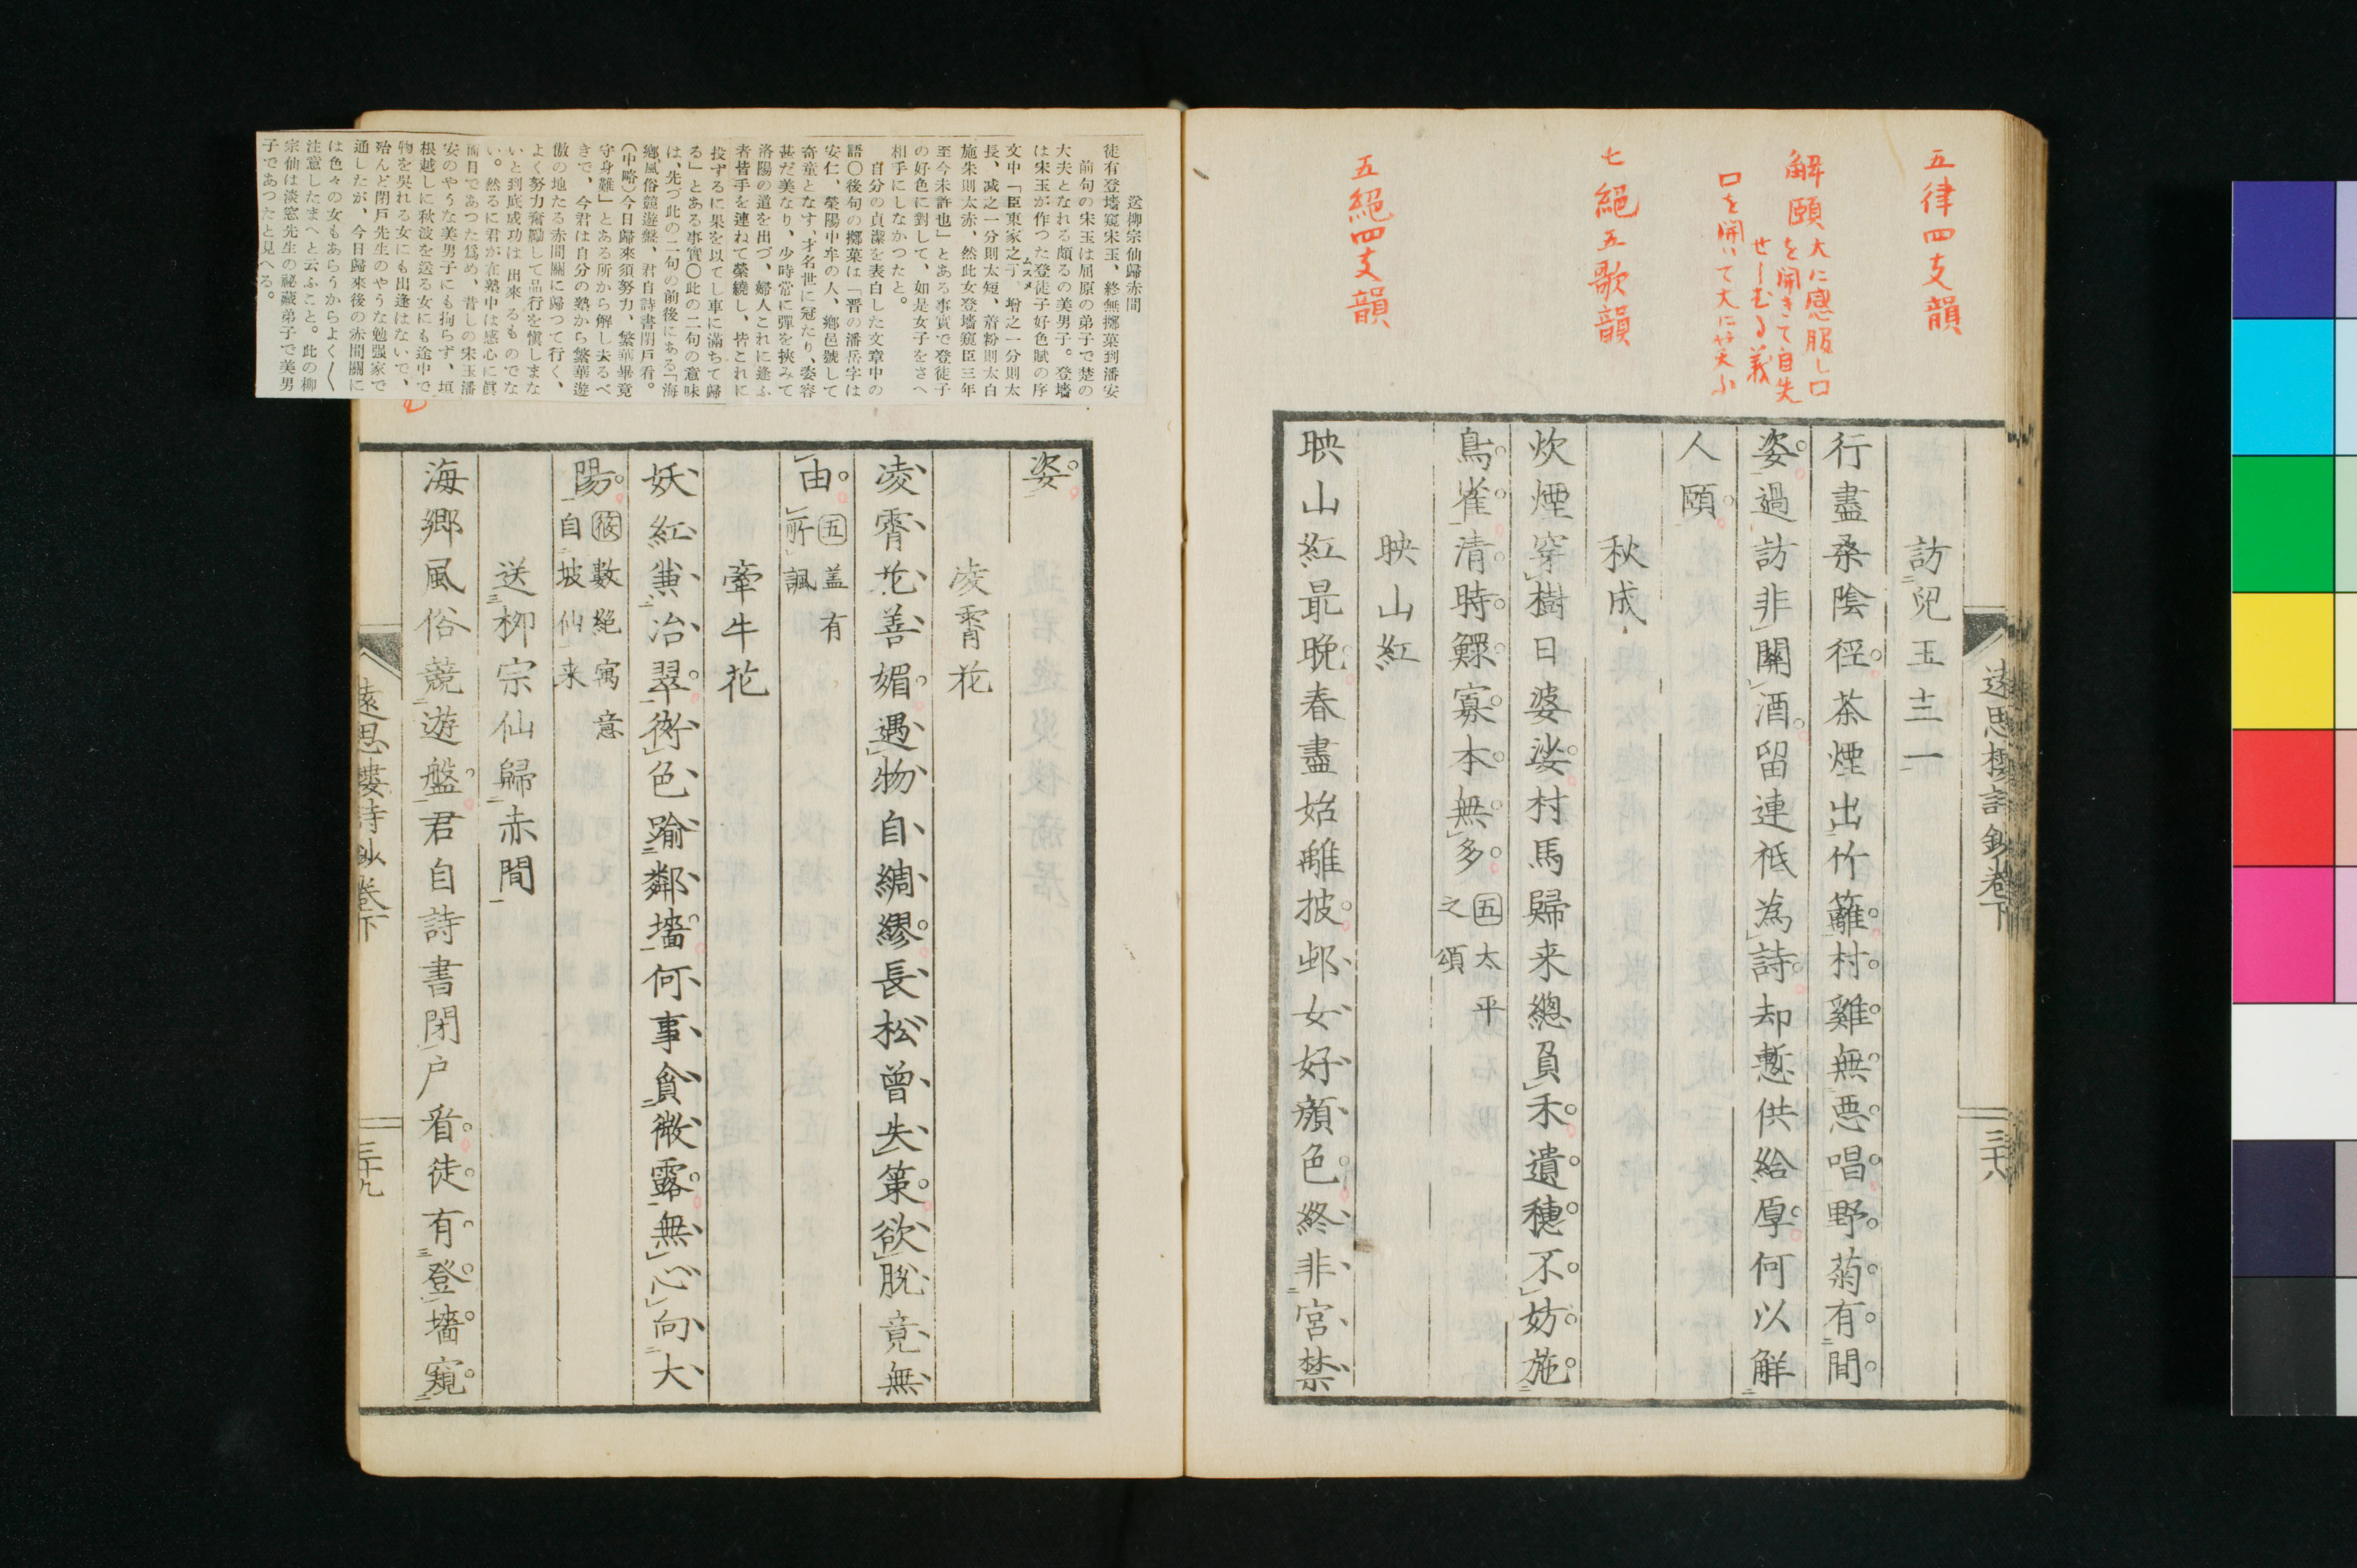 五律四支韻
解頤大に感服し口
を開きて自失
せしむる義
口を開いて大に笑ふ
七絕五歌韻
五絕四支韻
遠思樓詩鈔卷下
三十八
訪兒玉士一
行盡桑陰徑茶煙出竹籬村雞無惡唱野菊有閒
姿過訪非關酒留連祗為詩却慙供給厚何以解
人頤
秋成
炊煙穿樹日婆娑村馬歸来總負禾遺穗不妨施
鳥雀清時鰥寡本無多 五 太平
之頌
映山紅
映山紅最晩春盡始離披邨女好顏色終非宮禁
送柳宗仙歸赤間
徒有登墻窺宋玉、終無擲菓到潘安
前句の宋玉は屈原の弟子で楚の
大夫となれる頗るの美男子。登墻
は宋玉が作つた登徒子好色賦の序
文中「臣東家之子ムスメ、增之一分則太
長、减之一分則太短、着粉則太白
施朱則太赤、然此女登墻窺臣三年
至今未許也」とある事實で登徒子
の好色に對して、如是女子をさへ
相手にしなかつたと。
自分の貞潔を表白した文章中の
語〇後句の擲菓は「晋の潘岳字は
安仁、滎陽中牟の人、鄕邑號して
奇童となす、才名世に冠たり、姿容
甚だ美なり、少時常に彈を挾みて
洛陽の道を出づ、婦人これに逢ふ
者皆手を連ねて縈繞し、皆これに
投ずるに果を以てし車に滿ちて歸
る」とある事實〇此の二句の意味
は、先づ此の二句の前後にある「海
鄕風俗競遊盤、君自詩書閉戶看。
(中略)今日歸來須努力、繁華畢竟
守身難」とある所から解し去るべ
きで、今君は自分の塾から繁華遊
傲の地たる赤間關に歸つて行く、
よく努力奮勵して品行を愼しまな
いと到底成功は出來るものでな
い。然るに君が在塾中は感心に眞
面目であつた爲め、昔しの宋玉潘
安のやうな美男子にも拘らず、垣
根越しに秋波を送る女にも途中で
物を吳れる女にも出逢はないで、
殆んど閉戶先生のやうな勉强家で
通したが、今日歸來後の赤間關に
は色々の女もあらうからよく〱
注意したまへと云ふこと。此の柳
宗仙は淡窓先生の祕藏弟子で美男
子であつたと見へる。
姿
凌霄花
凌霄花善媚遇物自綢繆長松曾失策欲脫竟無
由 五 盖有
所諷
牽牛花
妖紅兼冶翠衒色踰鄰墻何事貪微露無心向大
陽 筱 數絕寓意
自坡仙来
送柳宗仙歸赤間
海鄉風俗競遊盤君自詩書閉戶看徒有登墻窺
遠思樓詩鈔卷下
三十九